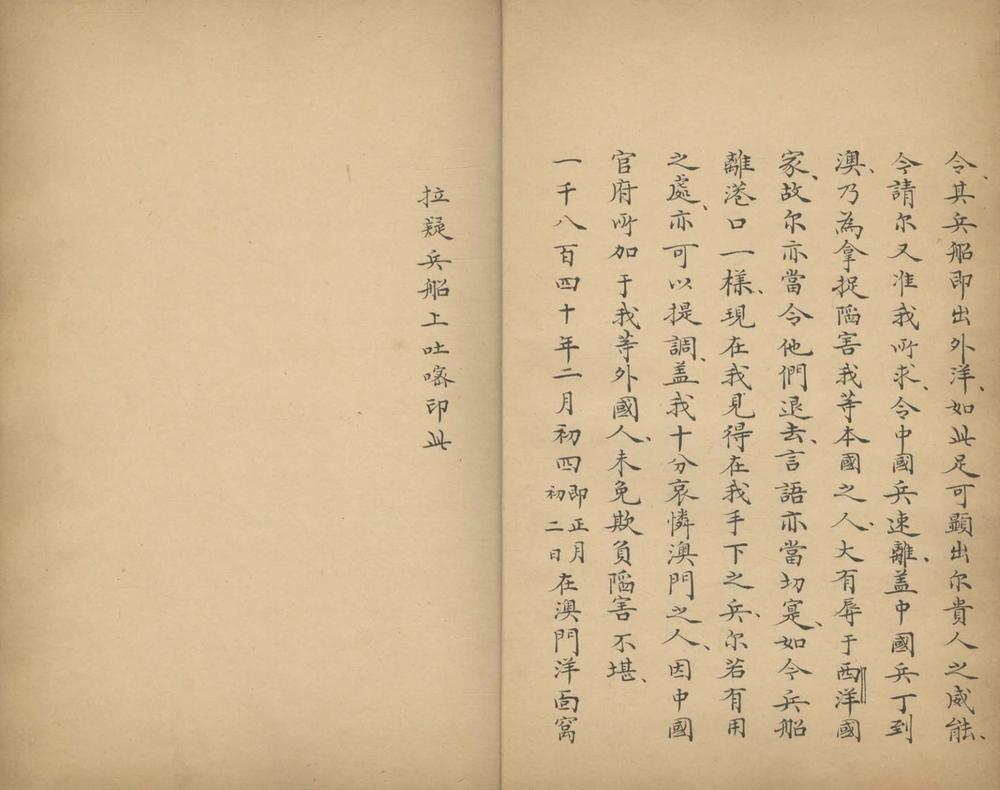 令、其兵船即出外洋、如此足可顯出尔貴人之威能、
今請尔又准我所求、令中國兵速離、盖中國兵丁到
澳、乃為拿捉陷害我等本國之人、大有辱于西洋國
家、故尔亦當令他們退去、言語亦當切寔、如令兵船
離港口一樣、現在我見得在我手下之兵、尔若有用
之處、亦可以提調、盖我十分哀憐澳門之人、因中國
官府所加于我等外國人、未免欺負陷害不堪、
一千八百四十年二月初四即正月初二日在澳門洋面窩
拉疑兵船上吐嘧印此